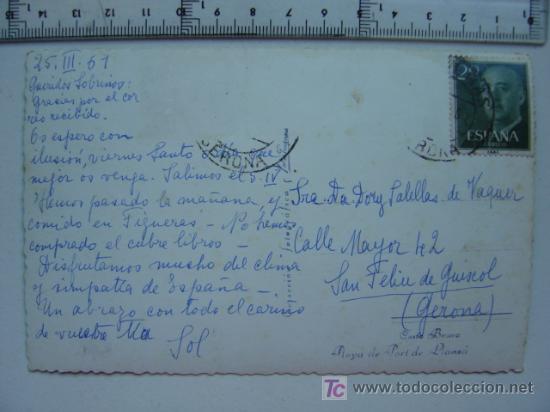 25.III.61
Queridos Sobrinos:
Gracias por el cor
reo recibido.
Os espero con
ilusión, viernes Santo
mejor os venga. Salimos el 5.IV
Hemos pasado la mañana, y
comido en Figueras - No hemos
comprado el cubre libros -
Disfrutamos mucho del clima
y simpatía de España -
Un abrazo con todo el cariño
de vuestra
Sol
GERONA
2
ESPAÑA
Sra. Da. Dory Salellas de Vaquer
Calle Mayor 42
San Feliu de Guixol
(Gerona)
Costa Brava
Playa de Port de Llansá
todocoleccion
www.todocoleccion.net